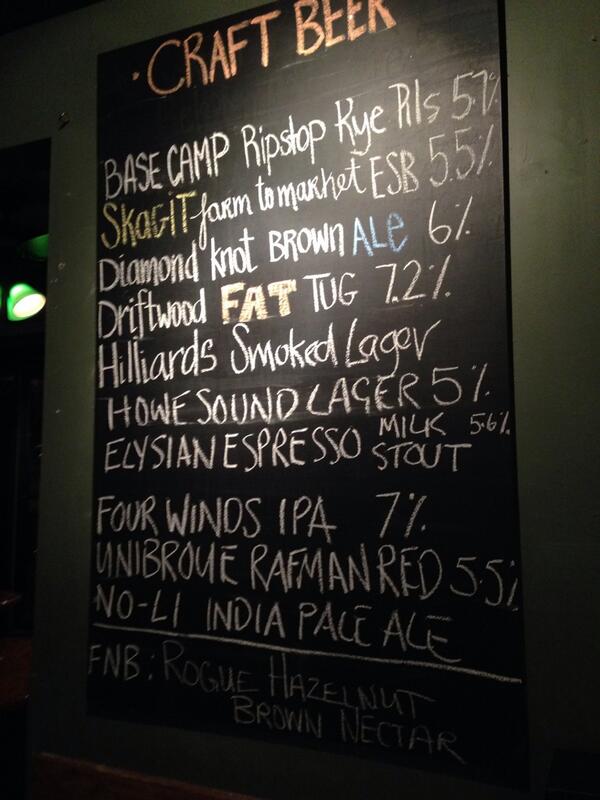 • CRAFT BEER
BASE CAMP Ripstop Rye Pils 5.1%
SKAGIT farm to market ESB 5.5%
Diamond knot BROWN ALe 6%
Driftwood FAT TUG 7.2%
Hilliards Smoked Lager
HOWE SOUND LAGER 5%
ELYSIAN ESPRESSO MILK STOUT 5.6%
FOUR WINDS IPA 7%
UNIBROUE RAFMAN RED 5.5%
NO-LI INDIA PALE ALE
FNB: ROGUE HAZELNUT
BROWN NECTAR